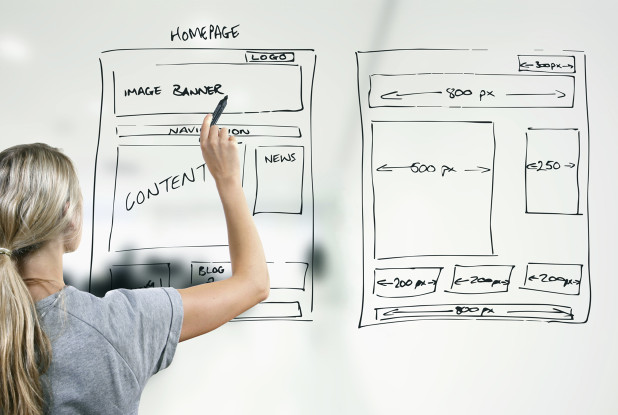 HOMEPAGE
LOGO
IMAGE BANNER
NAVIGATION
CONTENT
NEWS
BLOG
300px
800 px
500 px
250
200 px 200 px 200 px
800 px